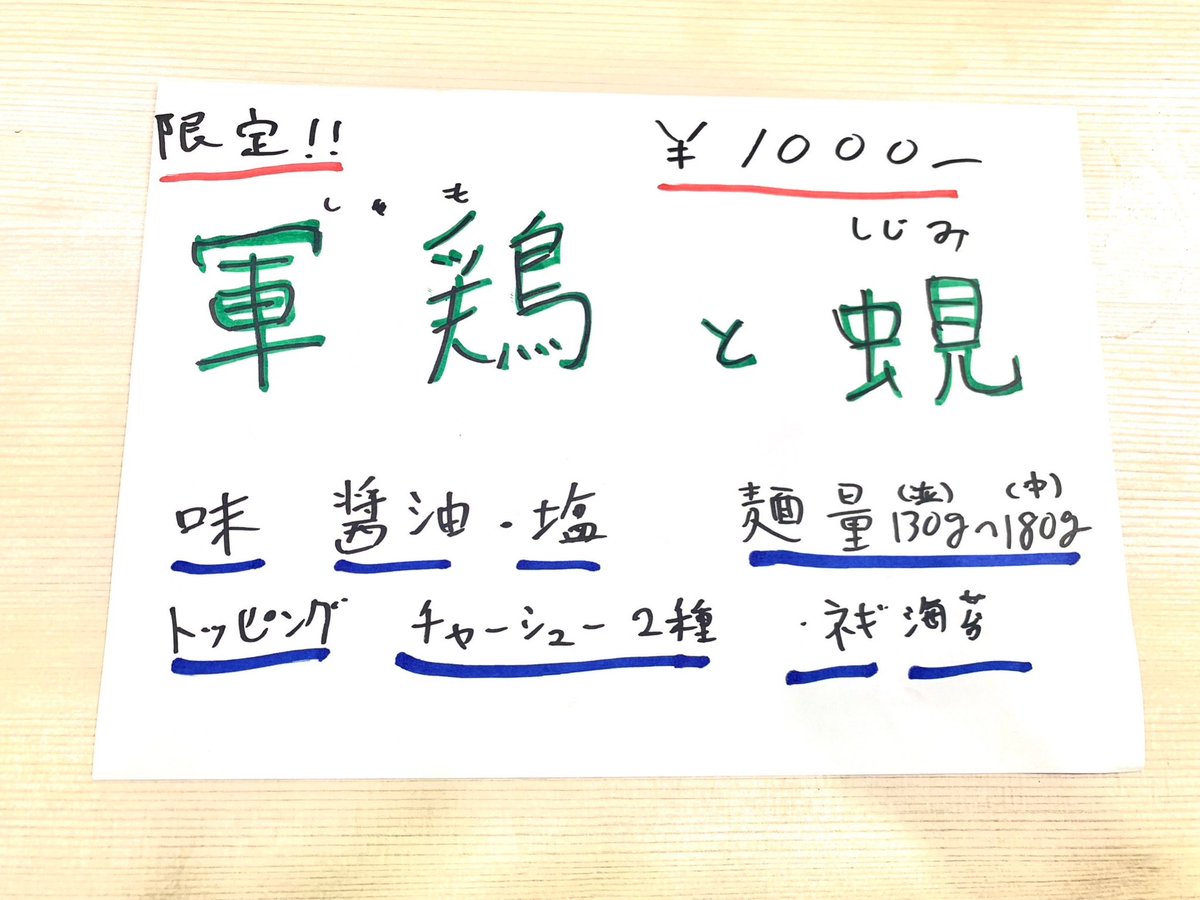 限定!! ¥1000ー
しゃも しじみ
軍鶏と蜆
味 醤油・塩 麺量 (並)130g〜(中)180g
トッピング チャーシュー2種 ・ネギ 海苔